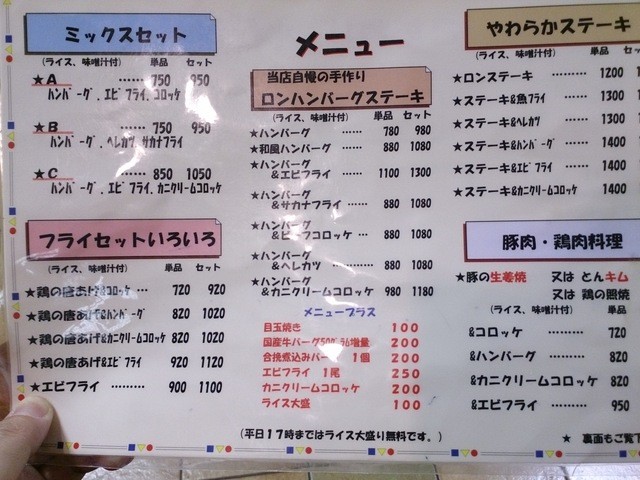 ミックスセット
(ライス、味噌汁付) 単品 セット
★A …… 750 950
ﾊﾝﾊﾞｰｸﾞ．ｴﾋﾞﾌﾗｲ.ｺﾛｯｹ
★B …… 750 950
ﾊﾝﾊﾞｰｸﾞ.ﾍﾚｶﾂ.ｻｶﾅﾌﾗｲ
★C …… 850 1050
ﾊﾝﾊﾞｰｸﾞ.ｴﾋﾞﾌﾗｲ.ｶﾆｸﾘｰﾑｺﾛｯｹ
フライセットいろいろ
(ライス、味噌汁付) 単品 セット
★鶏の唐あげ&ｺﾛｯｹ … 720 920
★鶏の唐あげ&ﾊﾝﾊﾞｰｸﾞ 820 1020
★鶏の唐あげ&ｶﾆｸﾘｰﾑｺﾛｯｹ 820 1020
★鶏の唐あげ&ｴﾋﾞﾌﾗｲ 920 1120
★エビフライ ……… 900 1100
メニュー
当店自慢の手作り
ロンハンバーグステーキ
(ライス、味噌汁付) 単品 セット
★ハンバーグ …… 780 980
★和風ハンバーグ …… 880 1080
★ハンバーグ
&エビフライ …… 1100 1300
★ハンバーグ
&サカナフライ …… 880 1080
★ハンバーグ
&ビーフコロッケ … 880 1080
★ハンバーグ
&ヘレカツ ……… 880 1080
★ハンバーグ
&カニクリームコロッケ 980 1180
メニュープラス
目玉焼き 100
国産牛バーグ50ｸﾞﾗﾑ増量 200
合挽煮込みバーグ 1個 200
エビフライ 1尾 250
カニクリームコロッケ 200
ライス大盛 100
(平日17時まではライス大盛り無料です。)
やわらかステーキ
(ライス、味噌汁付) 単品
★ロンステーキ ……… 1200
★ステーキ&魚ﾌﾗｲ 1300
★ステーキ&ﾍﾚｶﾂ 1300
★ステーキ&ﾊﾝﾊﾞｰｸﾞ 1400
★ステーキ&ｴﾋﾞﾌﾗｲ 1400
★ステーキ&ｶﾆｸﾘｰﾑｺﾛｯｹ 1400
豚肉・鶏肉料理
★豚の生姜焼 又は とんキム
又は 鶏の照焼
(ライス、味噌汁付) 単品
&コロッケ ……… 720
&ハンバーグ ……… 820
&カニクリームコロッケ 820
&エビフライ ……… 950
★ 裏面もご覧下